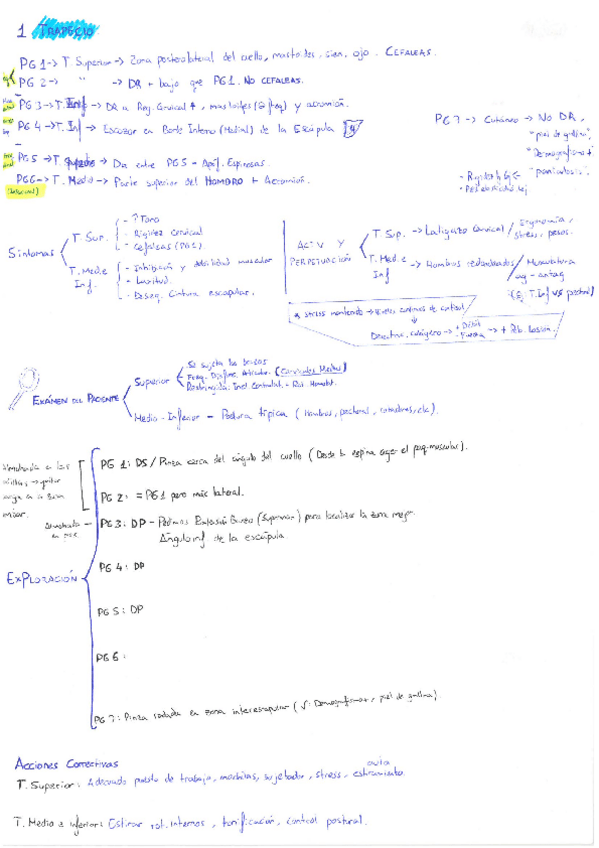 1 TRAPECIO
PG 1 → T Superior → Zona posterolateral del cuello, mastoides, sien, ojo. CEFALEAS.
PG 2 → " → DR + bajo que PG1. NO CEFALEAS.
PG 3 → T. Inf → DR a Reg. Cervical, mastoides y acromion.
PG 4 → T. Inf → Escozor en Borde Interno (Medial) de la Escápula
PG 5 → T. → DR entre PG5 - Apóf. Espinosas.
PG6 → T. Medio → Parte superior del HOMBRO + Acromion.
PG 7 → Cutáneo → No DR,
"piel de gallina",
Dermografismo +
"paniculosis".
Síntomas
T. Sup.
- ↑ Tono
- Rigidez Cervical
- Cefaleas (PG1).
T. Med. e Inf.
- Inhibición y debilidad muscular
- Laxitud.
- Deseq. Cintura escapular.
ACTIV Y PERPETUACIÓN
T. Sup. → Latigazo Cervical / Ergonomía, stress, pesos.
T. Med. e Inf → Hombros redondeados / Musculatura ag - antag
(Ej: T. Inf vs pectoral)
stress mantenido → niveles continuos de cortisol
Desestruc. colágeno → + Débil - Fuerza → + Pb. lesión.
EXÁMEN DEL PACIENTE
Superior
Se sujeta los brazos
Freq. Disfunc. Articular. (Cervicales Medias)
Restringida: Incl. Contralat. - Rot. Homolat.
Medio - Inferior - Postura típica (Hombros, pectoral, rotadores, etc.)
EXPLORACIÓN
PG 1: DS / Pinza cerca del ángulo del cuello (Desde la espina coger el paq. muscular).
PG 2: = PG 1 pero más lateral.
PG 3: DP - Pedimos Extensión Brazo (Supinación) para localizar la zona mejor.
Ángulo inf de la escápula.
PG 4: DP
PG 5: DP
PG 6:
PG 7: Pinza rodada en zona interescapular (Dermografismo+, piel de gallina)
Acciones Correctivas
T. Superior: Adecuado puesto de trabajo, mochilas, sujetador, stress, auto estiramiento.
T. Medio e Inferior: Estirar rot. internos, tonificación, control postural.